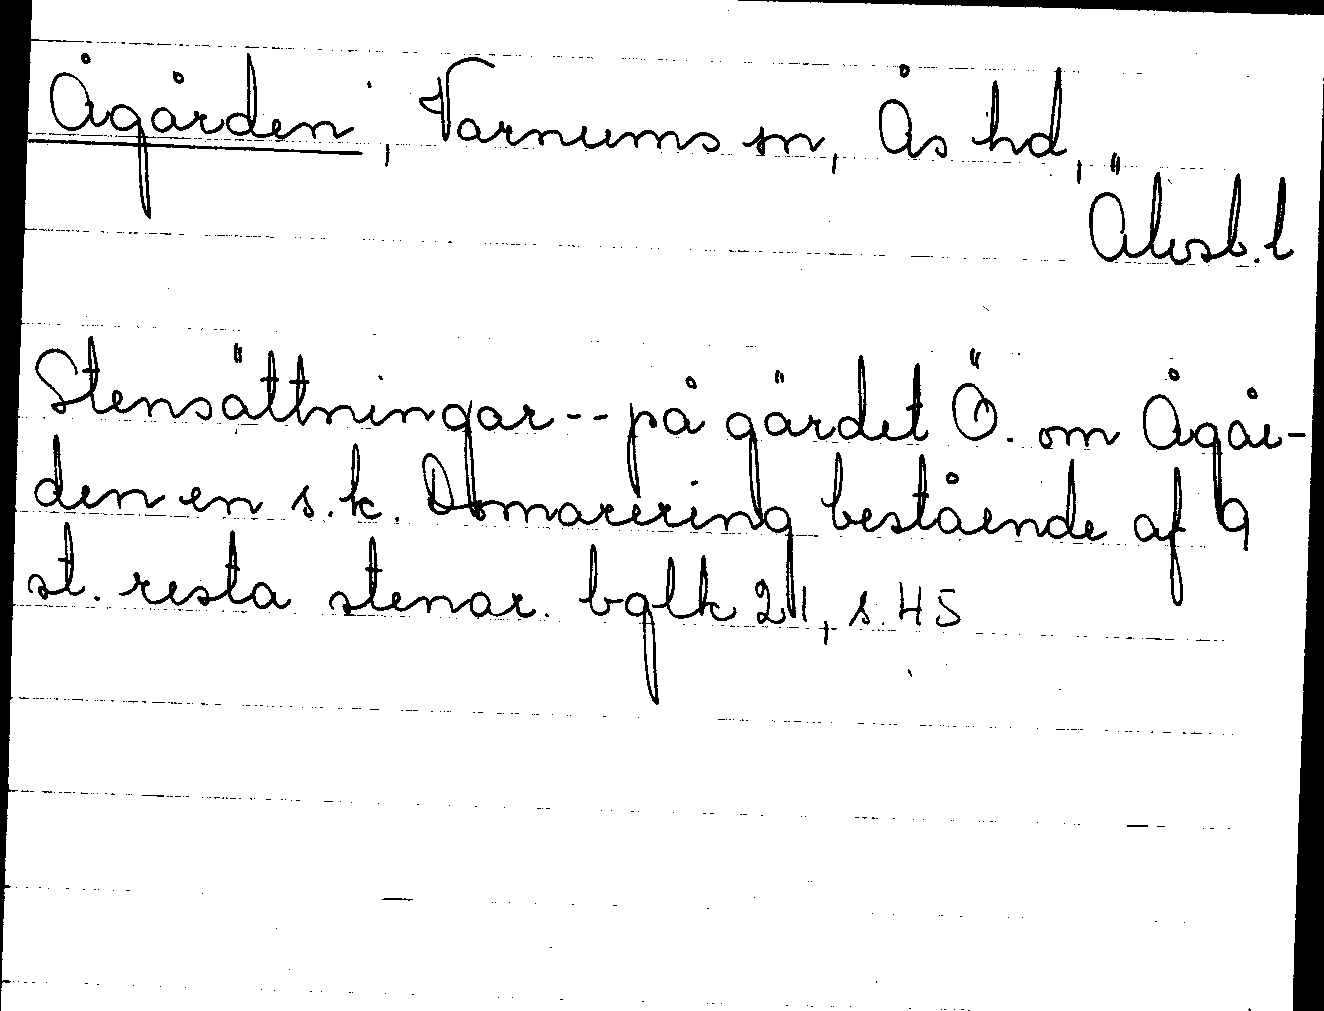 Ågården, Varnums sn, Ås hd,
Älvsb. l
Stensättningar -- på gärdet Ö. om Ågår-
den en s.k. Domarering bestående af 9
st. resta stenar. bglk 21, s. 45